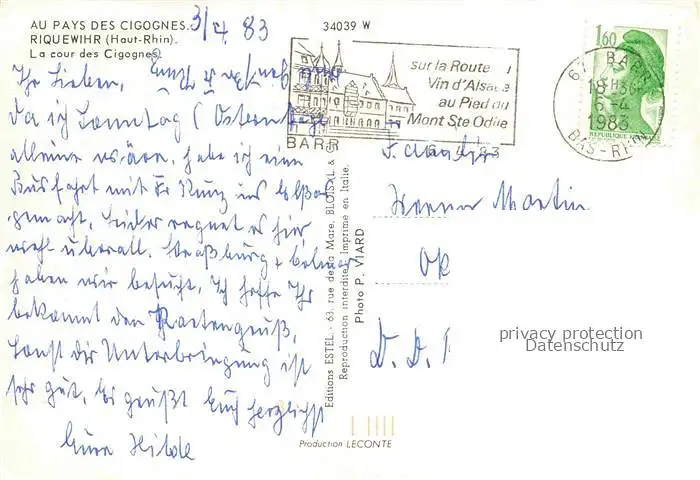 AU PAYS DES CIGOGNES.
RIQUEWIHR (Haut-Rhin).
La cour des Cigognes.
3/4 83
34039 W
Ihr Lieben,
da ich Sonntag (Ostern
alleine wäre, habe ich eine
Busfahrt mit Fr Kunz ins Elsaß
gemacht. Leider regnet es hier
wohl überall. Straßburg + Colmar
haben wir besucht. Ich hoffe Ihr
bekommt den Kartengruß,
sonst die Unterbringung ist
sehr gut. Es grüßt Euch herzlichst
Eure Hilde
sur la Route
Vin d'Alsace
au Pied du
Mont Ste Odile
BARR
1,60
67 BARR
18H30
6-4
1983
BAS-RHIN
Familie
Werner Martin
Editions ESTEL - 63, rue de la Mare, BLOIS
Reproduction interdite. Imprimé en Italie.
Photo P. VIARD
Production LECONTE
privacy protection
Datenschutz